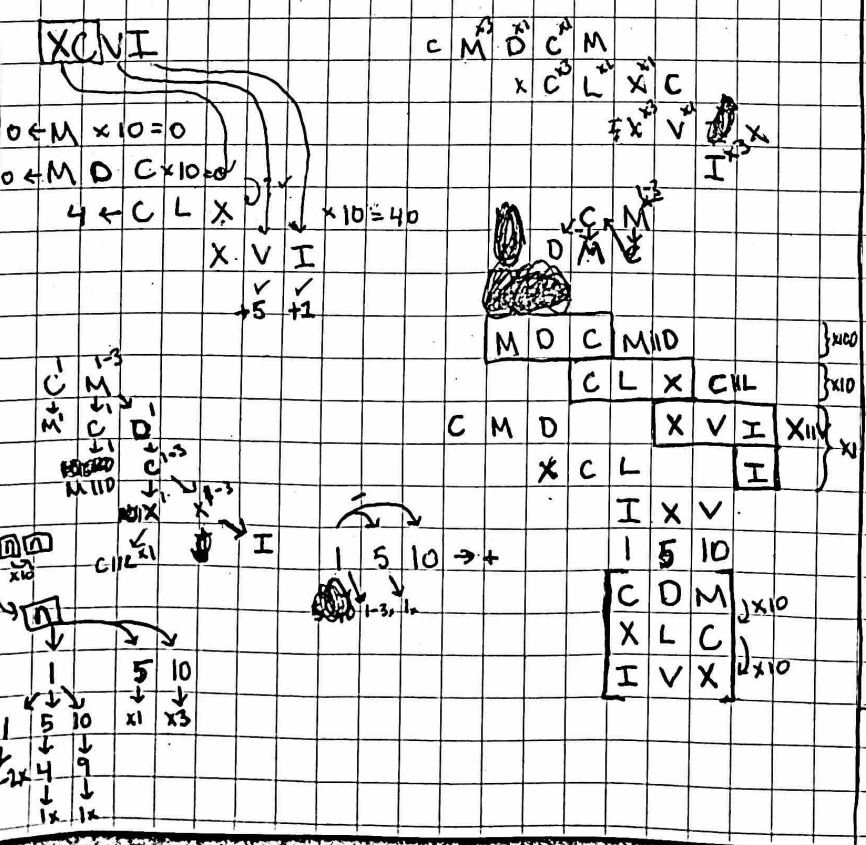 XCVI
C M×3 D×1 C×1 M
X C×3 L×1 X×1 C
X×3 V×1 X
I×3
0 ← M ×10=0
0 ← M D C ×10=0
4 ← C L X ×10=40
X V I
✓ ✓
+5 +1
C M 1-3
D M C
M D C M||D }×100
C L X C||L }×10
C M D X V I X||V }×1
X C L I
I X V
1 5 10
C D M
X L C ×10
I V X ×10
C1 M1-3
M1 C1 D1
C1-3
M||D
X1 X1-3
C||L ×1 I
- 
1 5 10 → +
1-3x 1x
n n
×10
n
1 5 10
×1 ×3
1 5 10
-2x 4 9
1x 1x